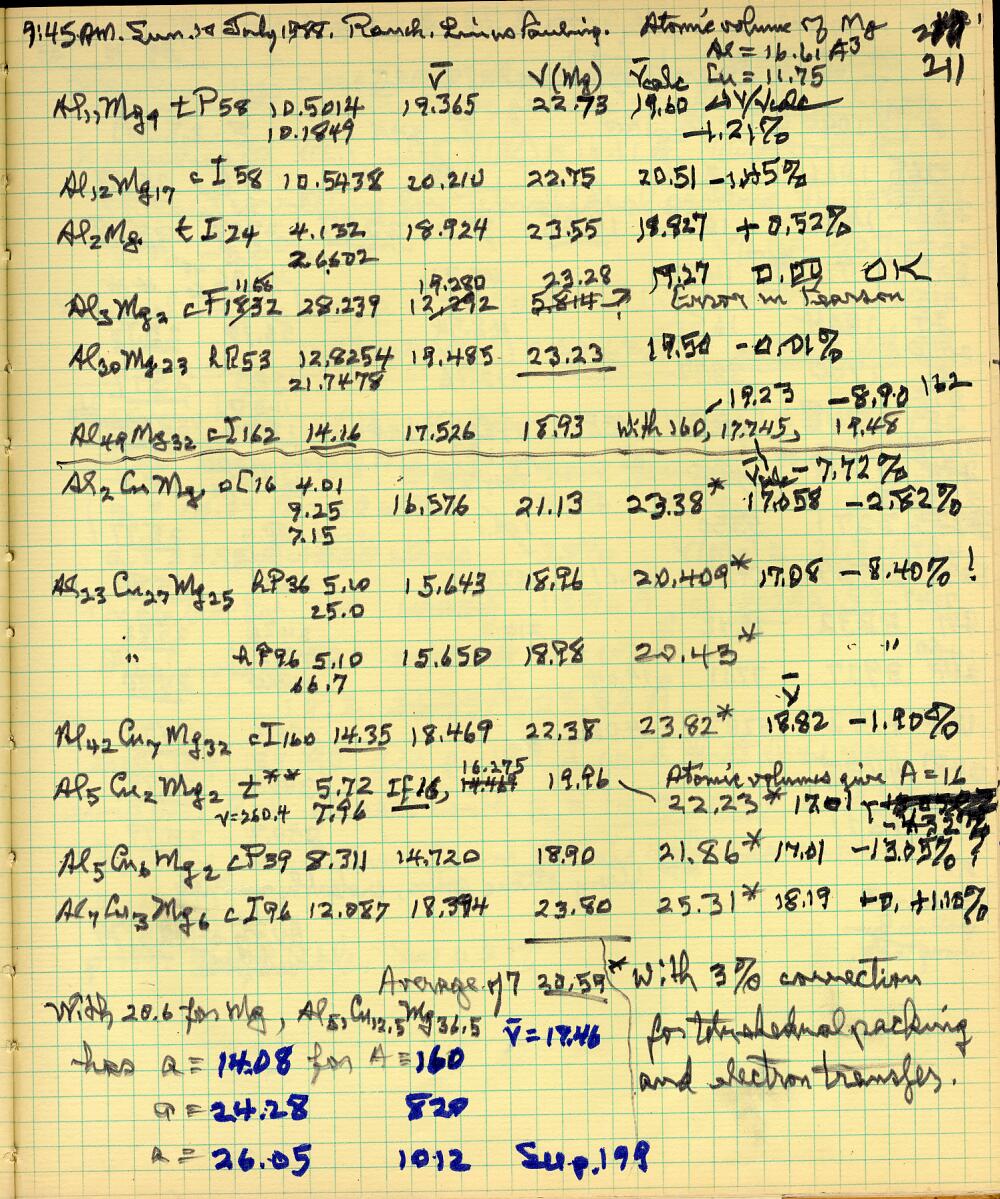 9:45 AM. Sun. July 1988. Ranch. Linus Pauling. Atomic volume of Mg
Al = 16.61 A3 211
V̄ V(Mg) V̄calc Cu = 11.75
tP58 10.5014 19.365 22.73 19.60
10.1849 -1.21%
Al12Mg17 cI58 10.5438 20.210 22.75 20.51
Al2Mg tI24 4.132 18.924 23.55 18.827 + 0.52%
26.602
1168 19.280 23.28 19.27 0.00 OK
Al3Mg2 cF1832 28.239 12.292 5.814 ? Error in Pearson
Al30Mg23 hR53 12.8254 19.485 23.23 19.50 -0.01%
21.7478
19.23 -8.90 162
Al49Mg32 cI162 14.16 17.526 18.93 with 160, 17.745, 19.48
V̄calc -7.72%
Al2CuMg oC16 4.01 16.576 21.13 23.38* 17.058 -2.82%
9.25
7.15
Al23Cu27Mg25 hP36 5.10 15.643 18.96 20.409* 17.08 -8.40% !
25.0
" hP96 5.10 15.650 18.98 20.43* "
66.7
V̄
Al42Cu7Mg32 cI160 14.35 18.469 22.38 23.82* 18.82 -1.90%
16.275
Al5Cu2Mg2 t** 5.72 If 16, 14.467 19.96 Atomic volumes give A = 16
V=260.4 7.96 22.23* 17.01
Al5Cu6Mg2 cP39 8.311 14.720 18.90 21.86* 17.01 -13.05% ?
Al7Cu3Mg6 cI96 12.087 18.394 23.80 25.31* 18.19 +1.10%
Average of 7 20.59 * With 3% correction
With 20.6 for Mg, Al51Cu12.5Mg36.5 V̄ = 17.46 for tetrahedral packing
has a = 14.08 for A = 160 and electron transfer.
a = 24.28 820
a = 26.05 1012 Sup. 199